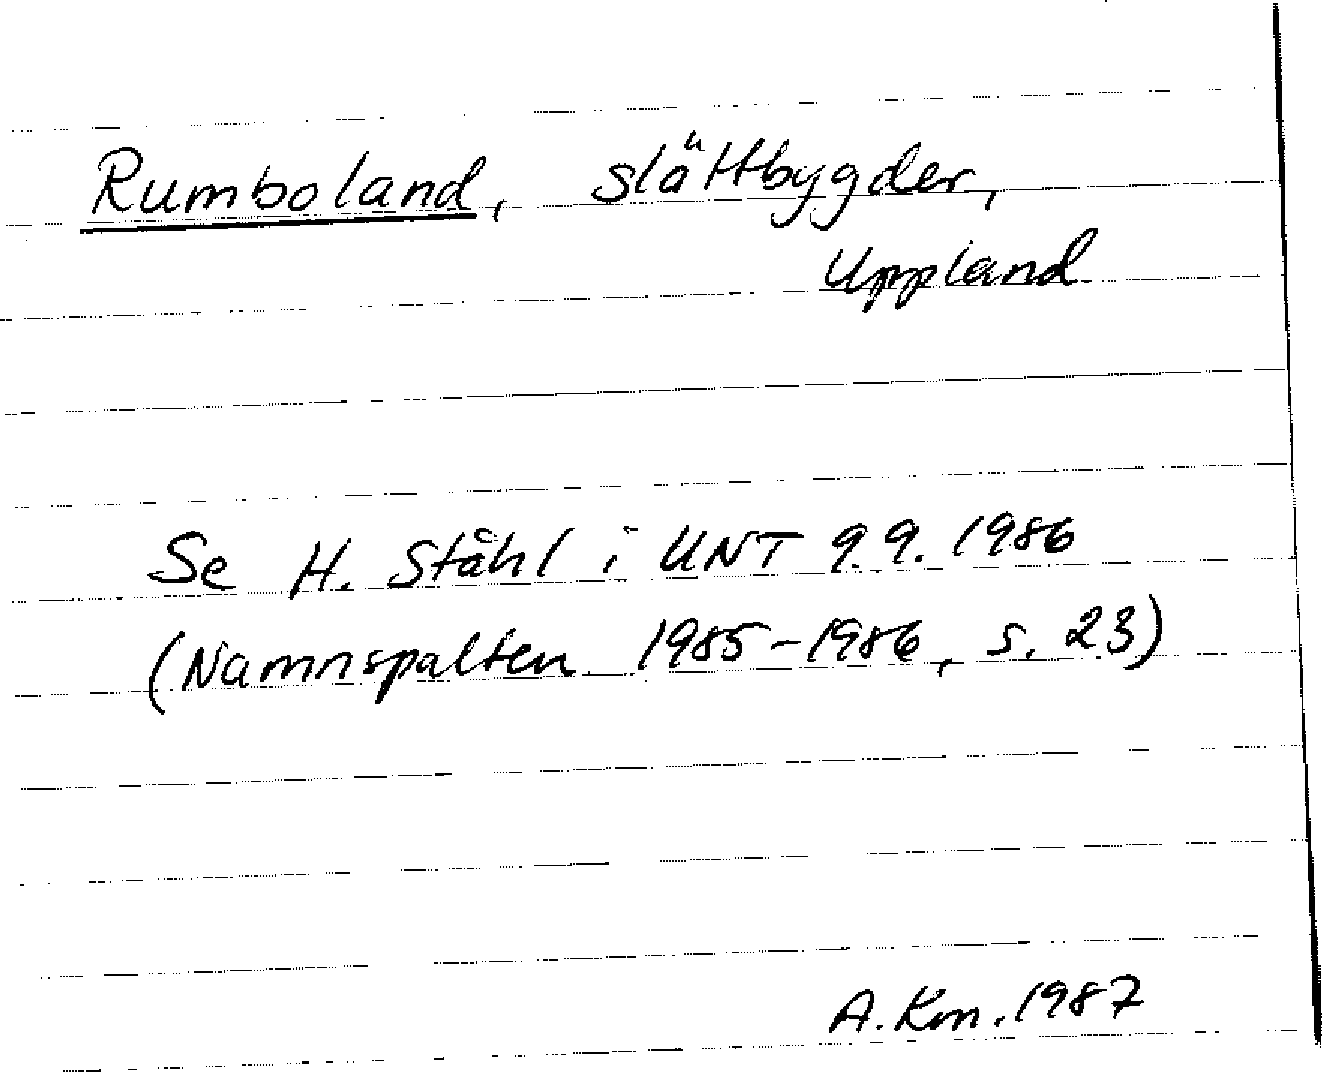 Rumboland, slättbygder,
Uppland
Se H. Ståhl i UNT 9.9.1986
(Namnspalten 1985-1986, s. 23)
A. Km. 1987